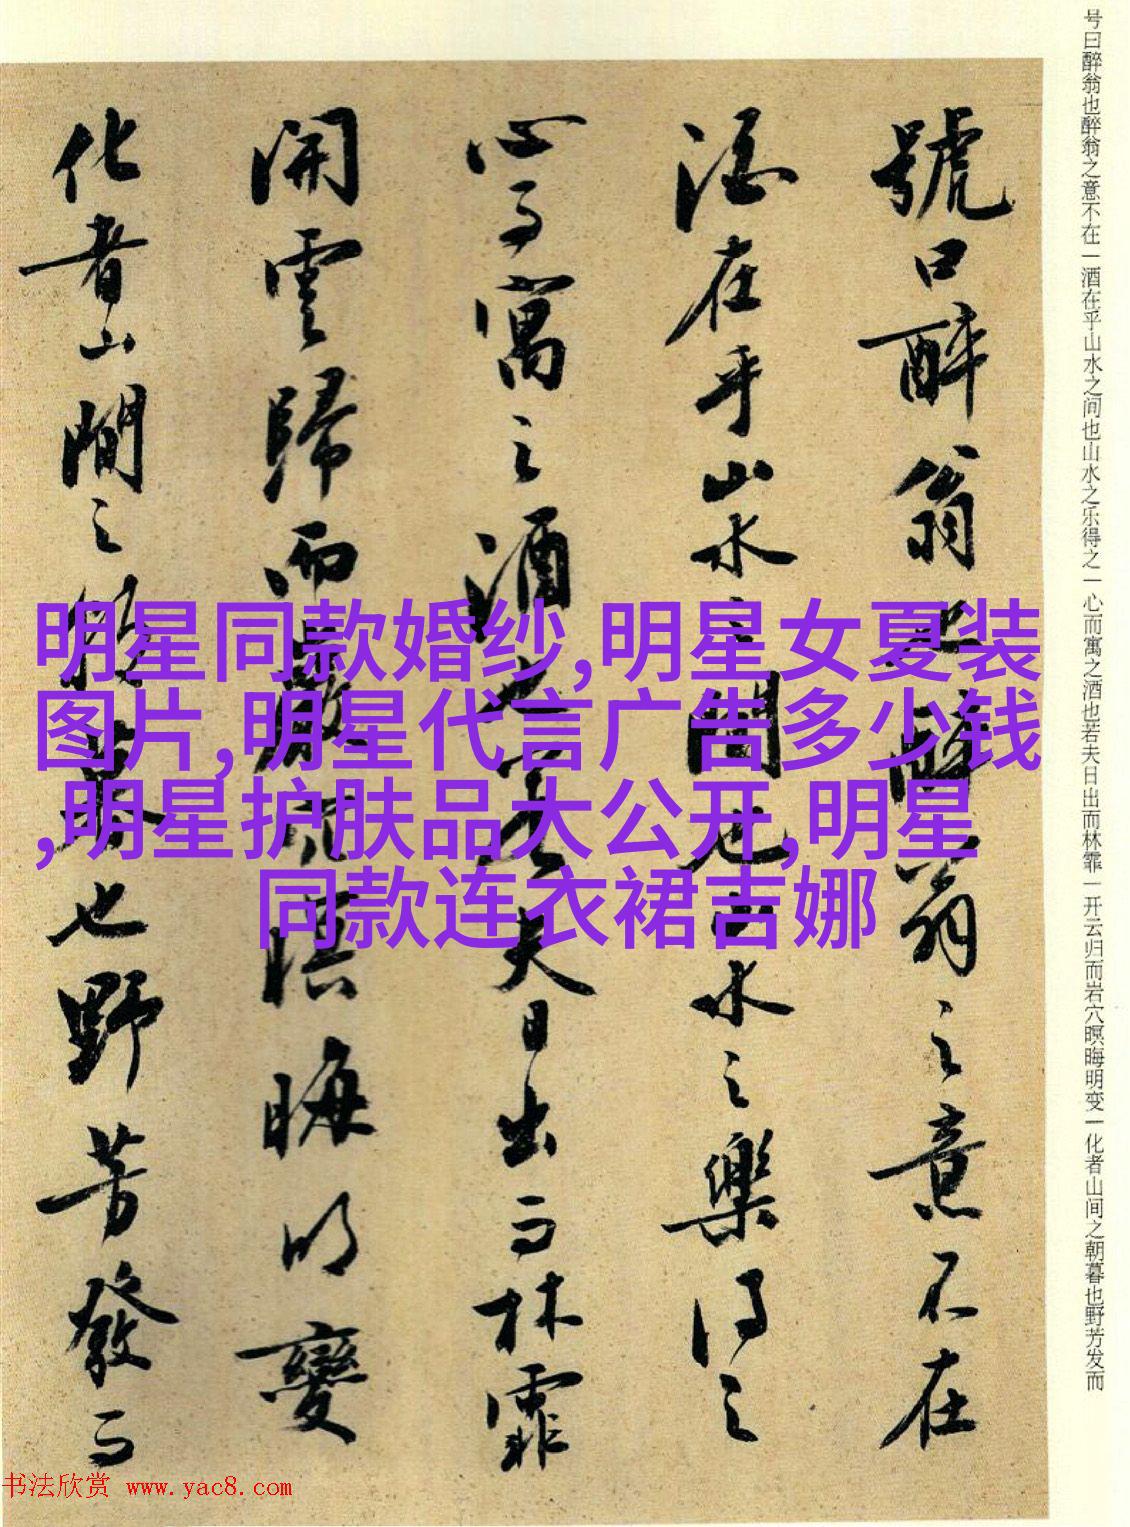 号曰醉翁也醉翁之意不在一酒在乎山水之间也山水之乐得之一心而寓之酒也若夫日出而林霏一开云归而岩穴暝晦明变一化者山间之朝暮也野芳发而
號曰醉翁也醉翁之意不在
酒在乎山水之間也山水之樂得之
心而寓之酒也若夫日出而林霏
開雲歸而巖穴暝晦明變
化者山間之朝暮也野芳發而
明星同款婚纱,明星女夏装
图片,明星代言广告多少钱
,明星护肤品大公开,明星
同款连衣裙吉娜
书法欣赏 www.yac8.com